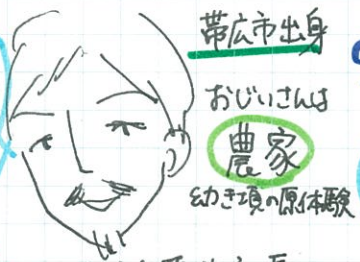 帯広市出身
おじいさんは
農家
幼き頃の原体験